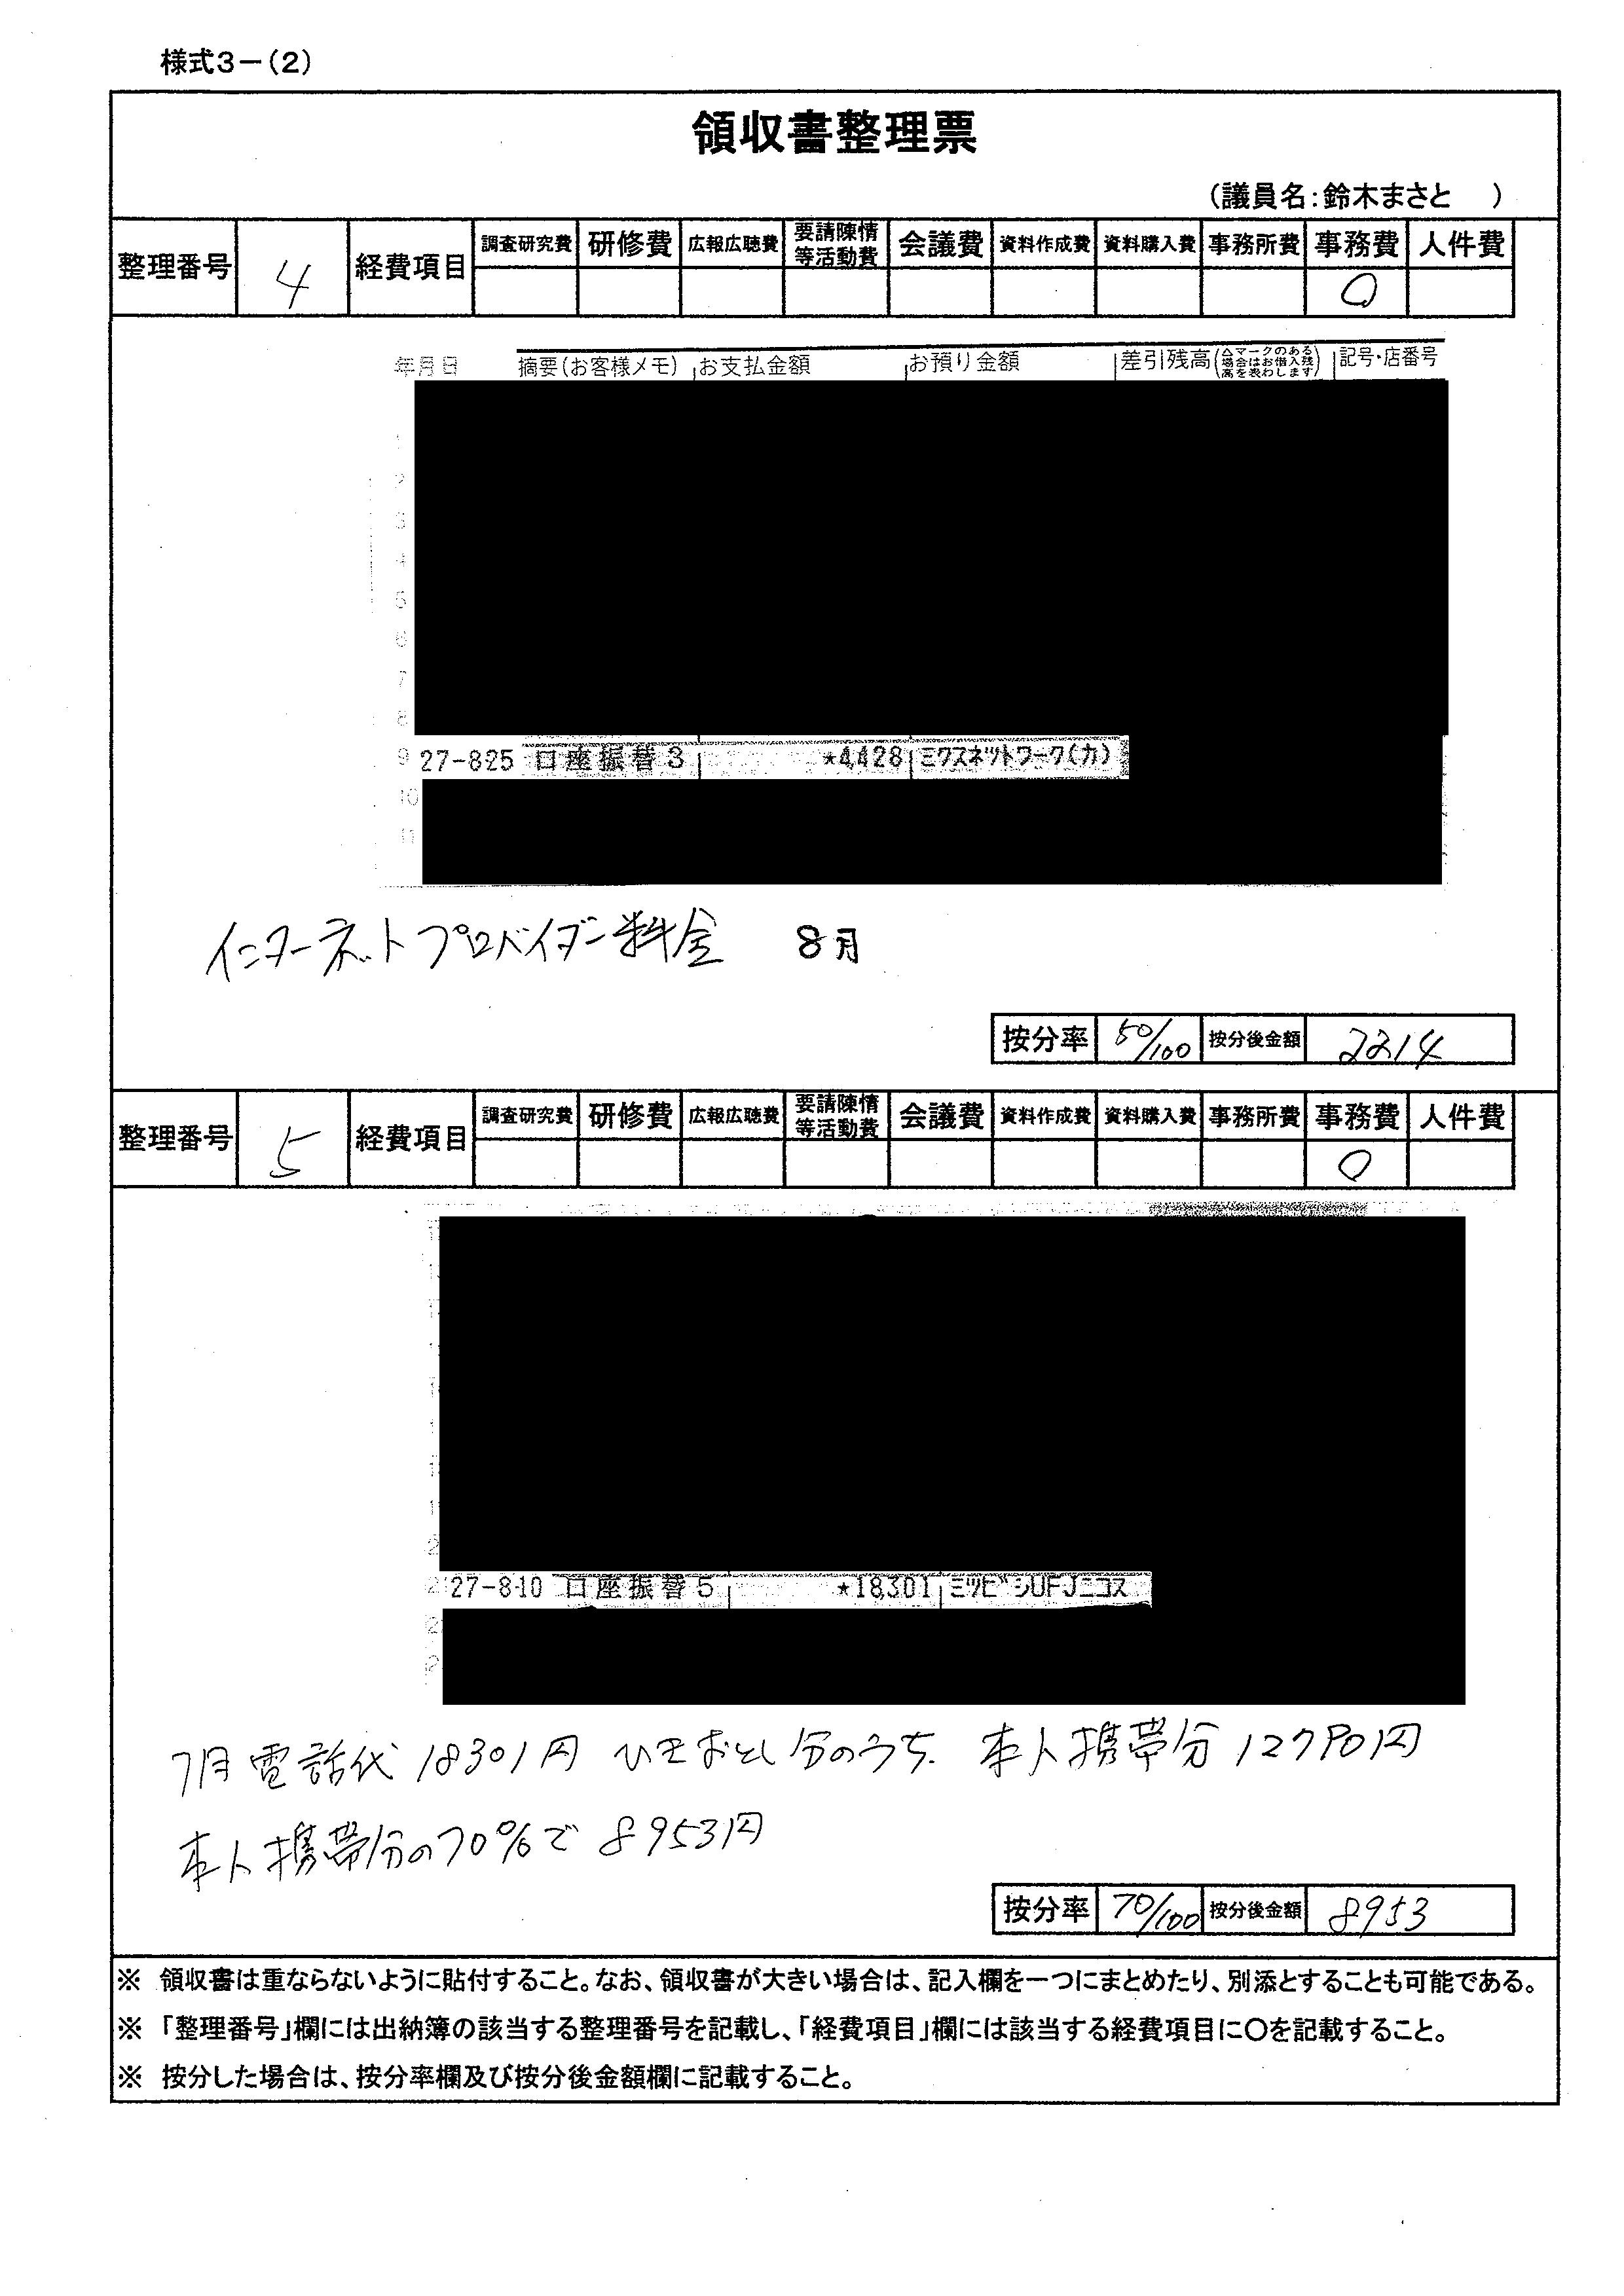 様式3－(2)
領収書整理票
(議員名:鈴木まさと　)
整理番号 4 経費項目 調査研究費 研修費 広報広聴費 要請陳情等活動費 会議費 資料作成費 資料購入費 事務所費 事務費 人件費
○
年月日 摘要(お客様メモ) お支払金額 お預り金額 差引残高(△マークのある場合はお借入残高を表わします) 記号・店番号
1
2
3
4
5
6
7
8
9 27-8-25 口座振替3 *4,428 ミクスネットワーク(カ)
10
11
インターネットプロバイダー料金 8月
按分率 50/100 按分後金額 2214
整理番号 5 経費項目 調査研究費 研修費 広報広聴費 要請陳情等活動費 会議費 資料作成費 資料購入費 事務所費 事務費 人件費
○
27-8-10 口座振替5 *18,301 ミツビシUFJニコス
7月電話代18301円 ひきおとし分のうち、本人携帯分12790円
本人携帯分の70%で8953円
按分率 70/100 按分後金額 8953
※ 領収書は重ならないように貼付すること。なお、領収書が大きい場合は、記入欄を一つにまとめたり、別添とすることも可能である。
※ 「整理番号」欄には出納簿の該当する整理番号を記載し、「経費項目」欄には該当する経費項目に○を記載すること。
※ 按分した場合は、按分率欄及び按分後金額欄に記載すること。